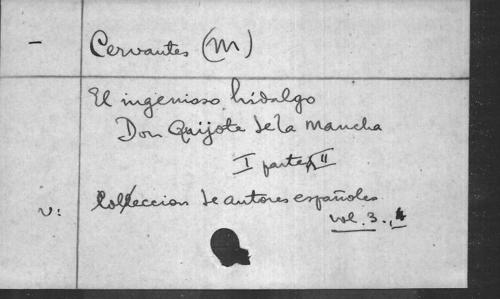 — Cervantes (M)
El ingenioso hidalgo
Don Quijote de la Mancha
I parte, II
v: Colleccion de autores españoles
vol. 3., 4